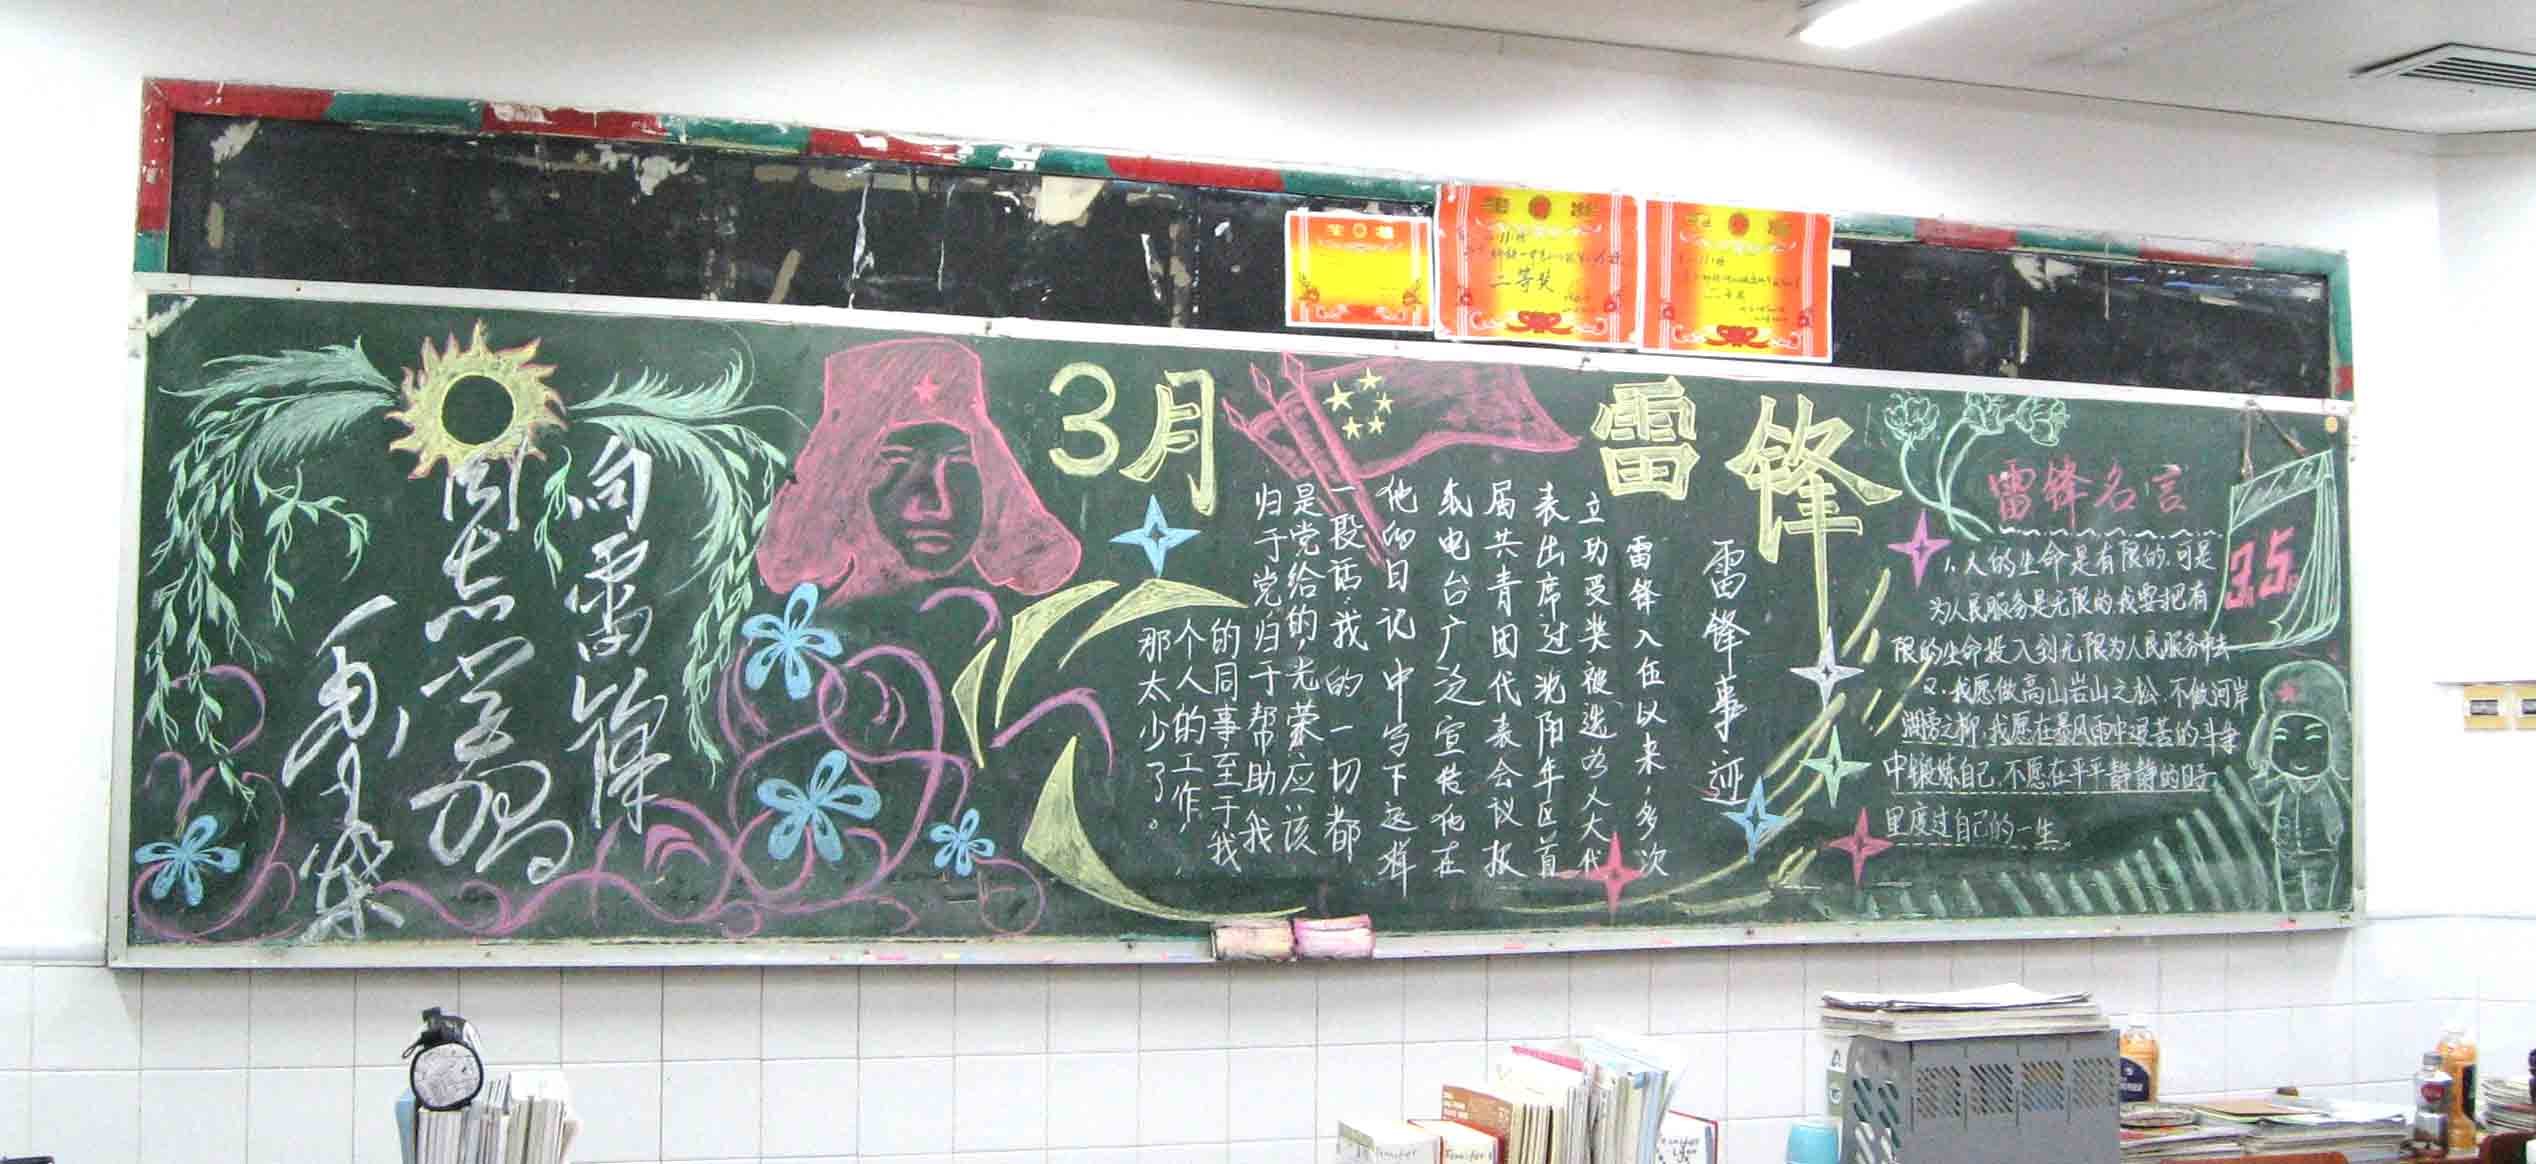 向雷锋
同志学习
毛泽东
3月
雷锋
雷锋事迹
雷锋入伍以来,多次
立功受奖被选为人大代
表出席过沈阳军区首
届共青团代表会议报
纸电台广泛宣传他在
他的日记中写下这样
一段话:我的一切都
是党给的,光荣应该
归于党归于帮助我
的同事至于我
个人的工作,
那太少了。
雷锋名言
1、人的生命是有限的,可是
为人民服务是无限的,我要把有
限的生命投入到无限为人民服务中去
2、我愿做高山岩山之松,不做河岸
湖旁之柳,我愿在暴风雨中艰苦的斗争
中锻炼自己,不愿在平平静静的日子
里度过自己的一生。
3月5日
二等奖
二等奖
Jennifer